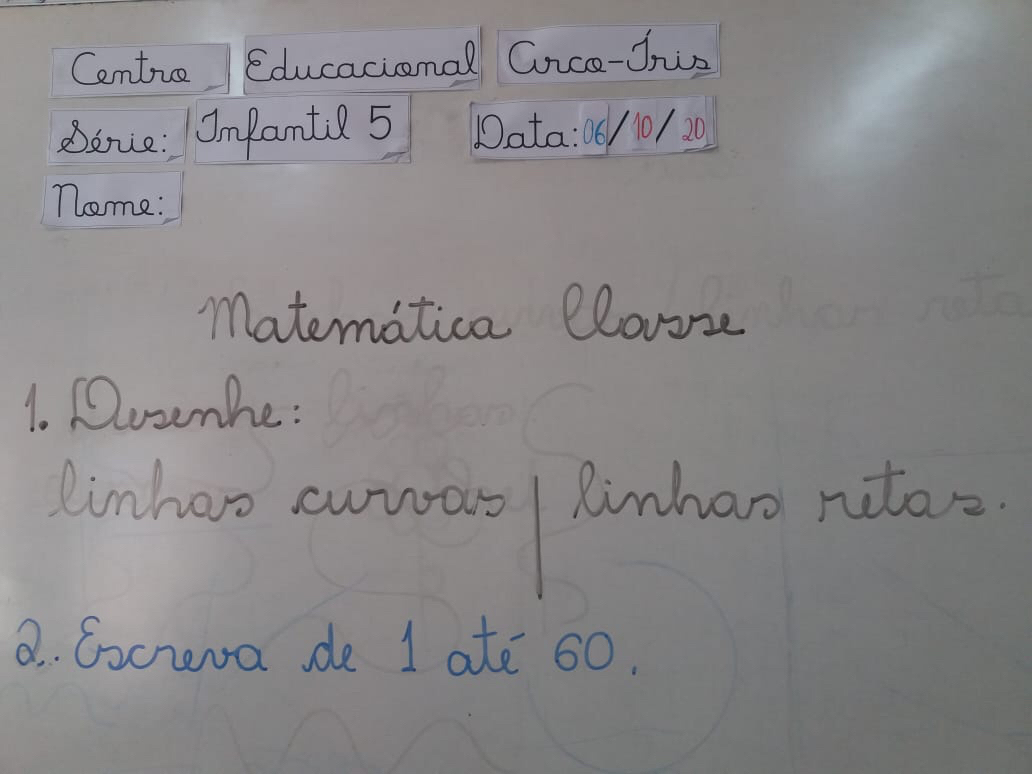 Centro Educacional Arco-Íris
Série: Infantil 5 Data: 06/10/20
Nome:
Matemática Classe
1. Desenhe:
linhas curvas | linhas retas.
2. Escreva de 1 até 60.